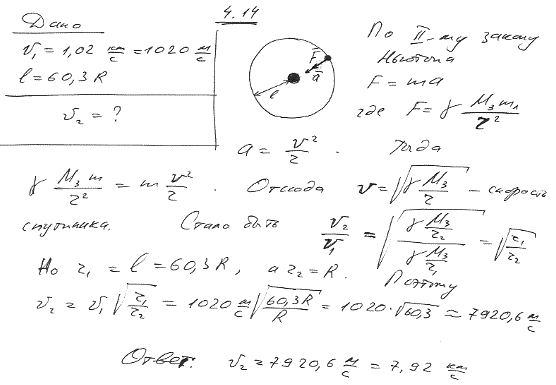 4.14
Дано
v₁ = 1,02 км/с = 1020 м/с
l = 60,3 R
v₂ = ?
F
a
l
По II-му закону
Ньютона
F = ma
где F = γ M₃ mл / r²
a = v²/r . Тогда
γ M₃ m / r² = m v²/r . Отсюда v = √(γ M₃/r) – скорость
спутника. Стало быть v₂/v₁ = √((γ M₃/r₂)/(γ M₃/r₁)) = √(r₁/r₂)
Но r₁ = l = 60,3 R , а r₂ = R. Поэтому
v₂ = v₁ √(r₁/r₂) = 1020 м/с √(60,3R/R) = 1020·√60,3 ≈ 7920,6 м/с
Ответ: v₂ = 7920,6 м/с = 7,92 км/с